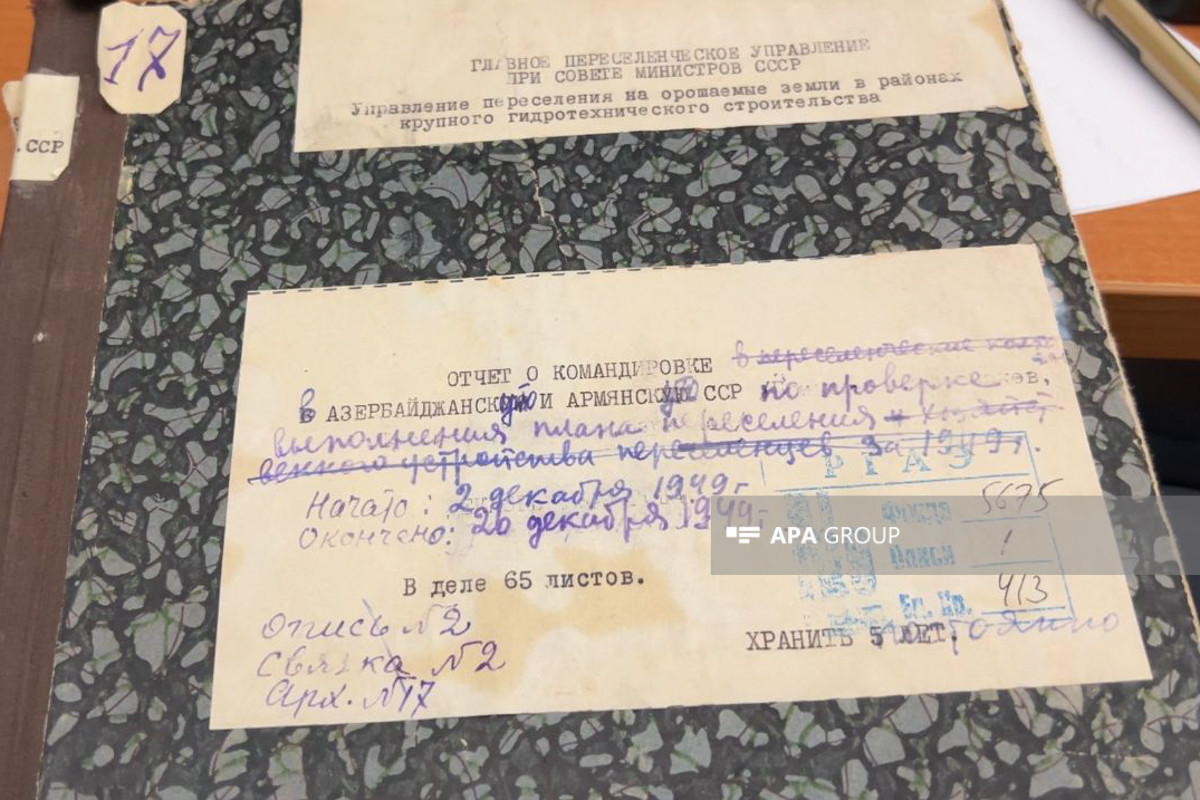 17
.ССР
ГЛАВНОЕ ПЕРЕСЕЛЕНЧЕСКОЕ УПРАВЛЕНИЕ
ПРИ СОВЕТЕ МИНИСТРОВ СССР
Управление переселения на орошаемые земли в районах
крупного гидротехнического строительства
ОТЧЕТ О КОМАНДИРОВКЕ в переселенческие
в АЗЕРБАЙДЖАНСКУЮ И АРМЯНСКУЮ ССР по проверке
выполнения плана переселения
устройства переселенцев за 1949 г.
Начато: 2 декабря 1949 г.
Окончено: 20 декабря 1949 г.
В деле 65 листов.
Опись №2
Связка №2
Арх. №17
РГАЭ
Фонда 5675
Описи 1
Ед. Хр. 413
ХРАНИТЬ 5 ЛЕТ.
APA GROUP